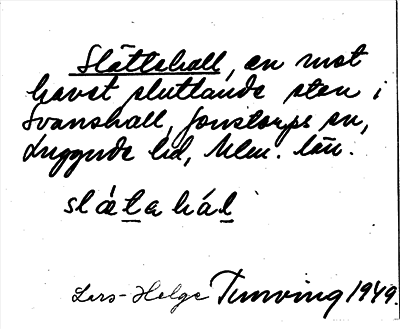 Slättshall, en mot
havet sluttande sten i
Svanshall, Jonstorps sn,
Luggude hd, Mlm. län.
slǽtahál
Lars-Helge Tunving 1949.